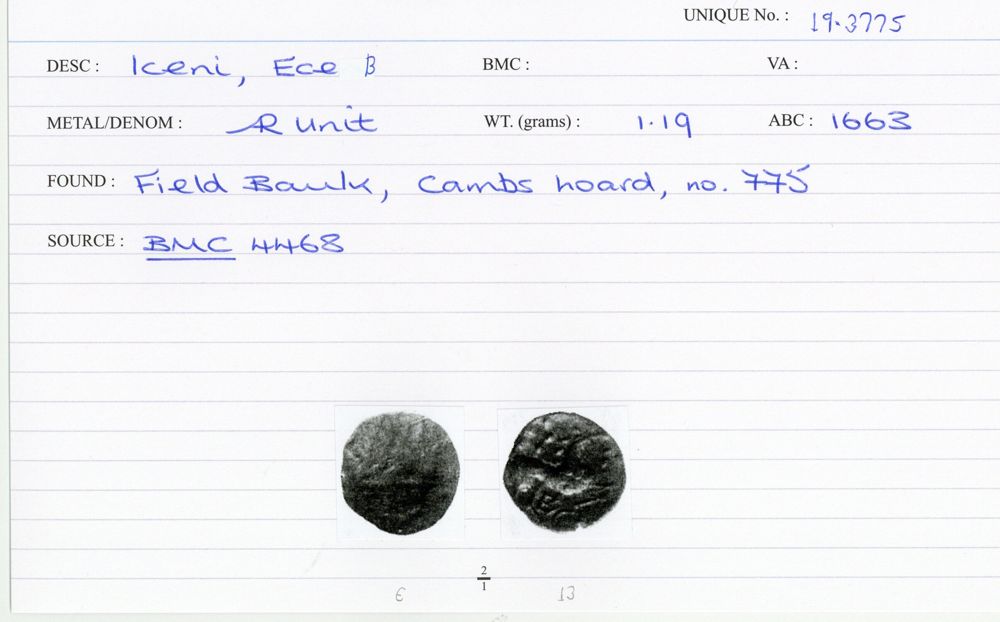 UNIQUE No. : 19·3775
DESC : Iceni, Ece B BMC : VA :
METAL/DENOM : AR Unit WT. (grams) : 1·19 ABC : 1663
FOUND : Field Baulk, Cambs hoard, no. 775
SOURCE : BMC 4468
2
1
6 13